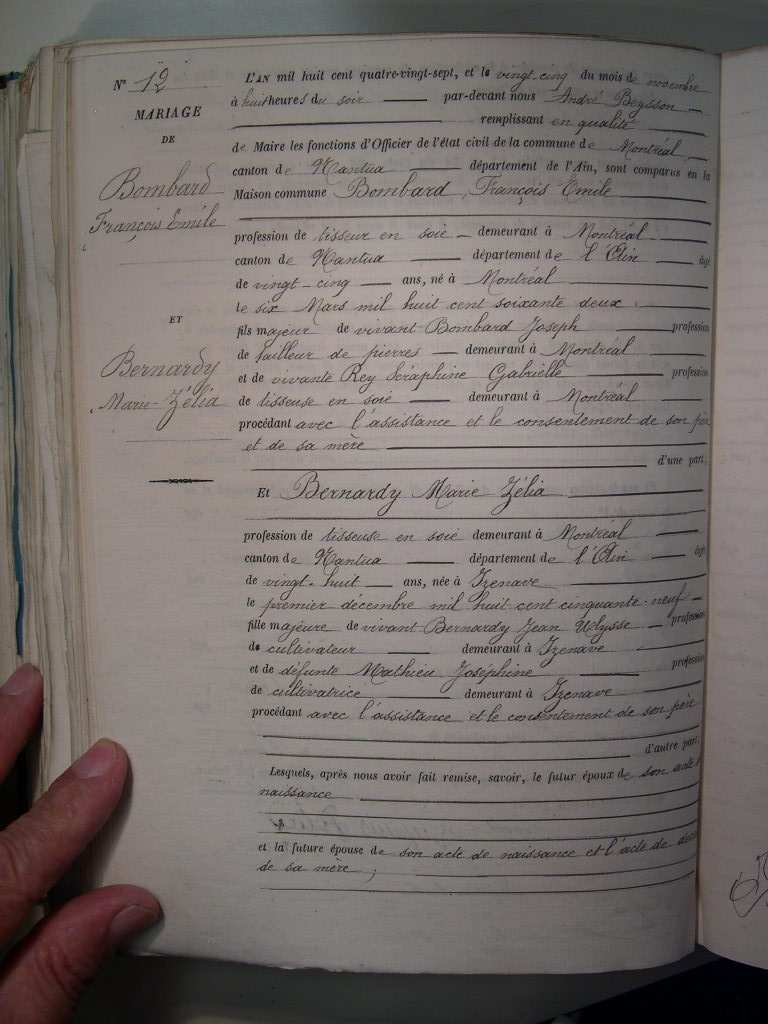 N° 12
MARIAGE
DE
Bombard
François Emile
ET
Bernardy
Marie-Zélia
L'AN mil huit cent quatre-vingt-sept, et le vingt-cinq du mois de novembre
à huit heures du soir par-devant nous André Beysson
remplissant en qualité
de Maire les fonctions d'Officier de l'état civil de la commune de Montréal,
canton de Nantua département de l'Ain, sont comparus en la
Maison commune Bombard, François Emile
profession de tisseur en soie demeurant à Montréal
canton de Nantua département de l'Ain âgé
de vingt-cinq ans, né à Montréal
le six Mars mil huit cent soixante deux.
fils majeur de vivant Bombard Joseph profession
de tailleur de pierres demeurant à Montréal
et de vivante Rey Séraphine Gabrielle profession
de tisseuse en soie demeurant à Montréal
procédant avec l'assistance et le consentement de son père
et de sa mère
d'une part,
Et Bernardy Marie Zélia
profession de tisseuse en soie demeurant à Montréal
canton de Nantua département de l'Ain âgé
de vingt-huit ans, née à Izenave
le premier décembre mil huit cent cinquante-neuf
fille majeure de vivant Bernardy Jean Ulysse profession
de cultivateur demeurant à Izenave
et de défunte Mathieu Joséphine profession
de cultivatrice demeurant à Izenave
procédant avec l'assistance et le consentement de son père
d'autre part.
Lesquels, après nous avoir fait remise, savoir, le futur époux de son acte
naissance
et la future épouse de son acte de naissance et l'acte de décès
de sa mère;